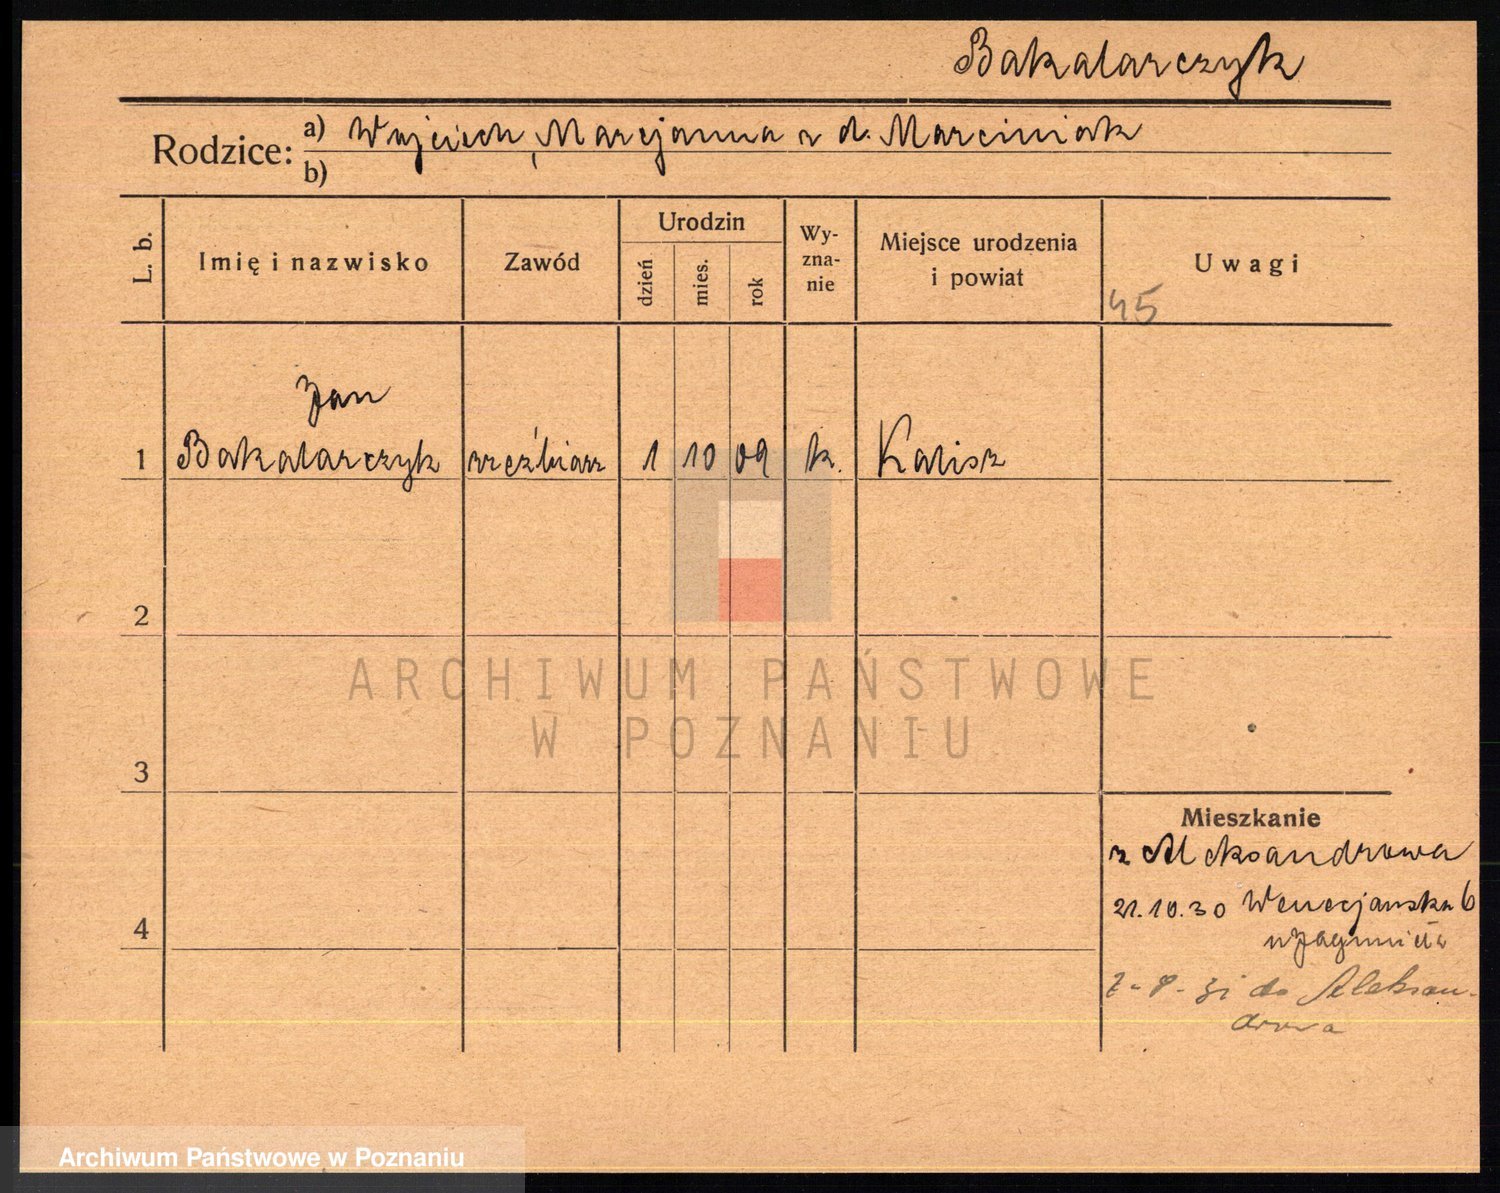 Bakalarczyk
Rodzice: a) Wojciech, Marcjanna z d. Marciniak
b)
L. b.
Imię i nazwisko
Zawód
Urodzin
dzień
mies.
rok
Wy-
zna-
nie
Miejsce urodzenia
i powiat
Uwagi
45
Jan
1 Bakalarczyk rzeźbiarz 1 10 09 k. Kalisz
2
ARCHIWUM PAŃSTWOWE
W POZNANIU
3
Mieszkanie
z Aleksandrowa
21.10.30 Wenecjańska 6
4
do Aleksan-
drowa
Archiwum Państwowe w Poznaniu